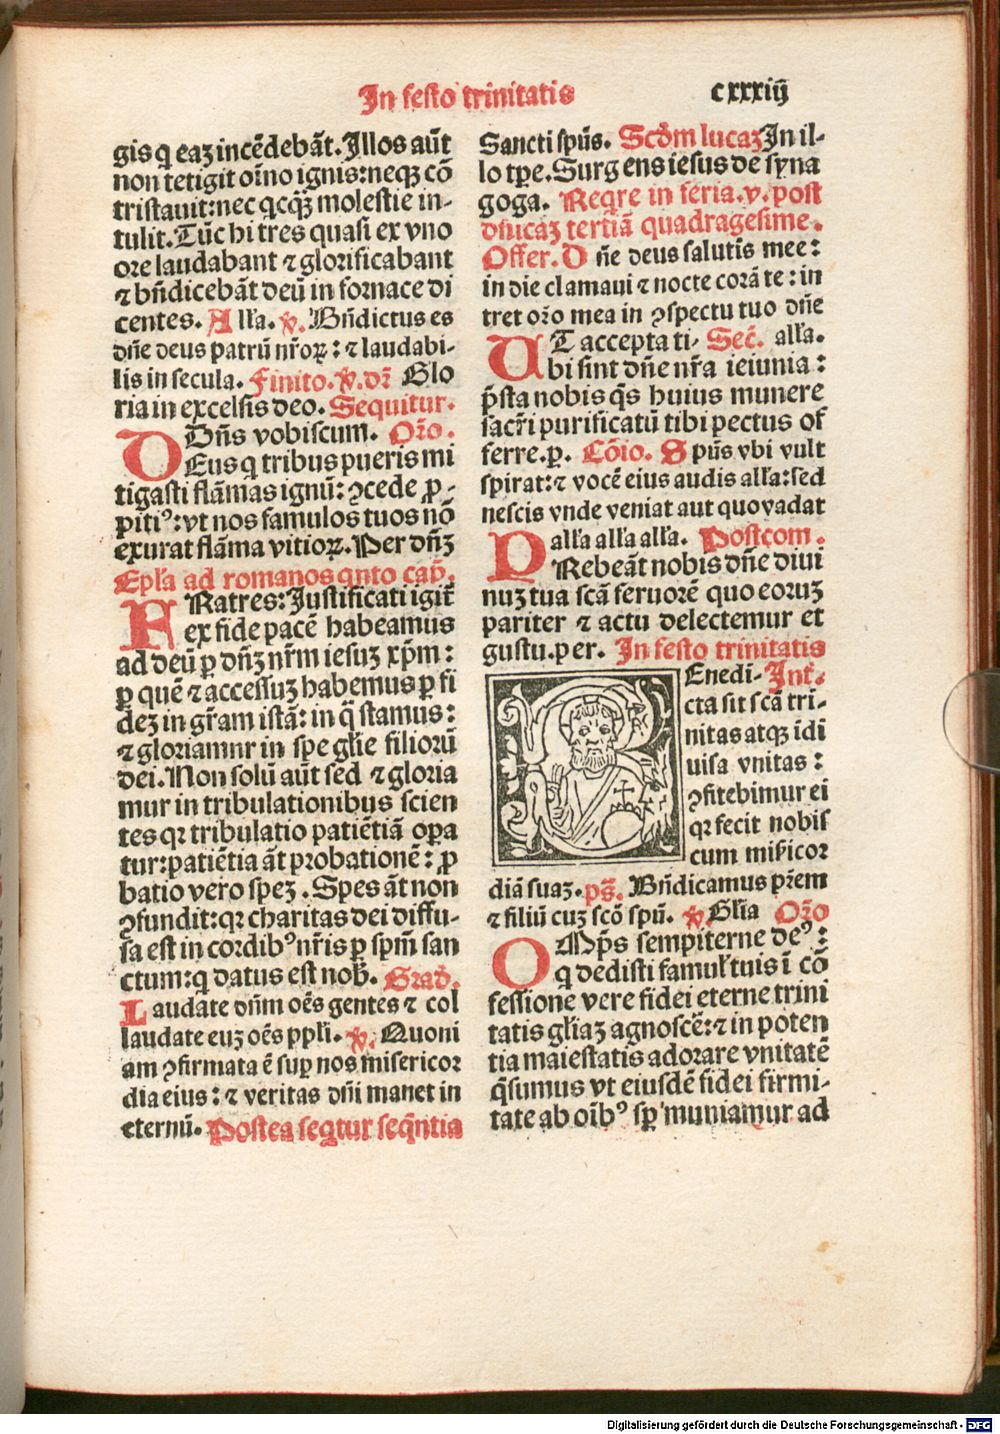 In festo trinitatis
cxxxiiij
gis q̄ eaʒ incēdebāt. Illos aūt
non tetigit oīno ignis: neqʒ cō
tristauit: nec qcq̄ʒ molestie in-
tulit. Tūc hi tres quasi ex vno
ore laudabant ⁊ glorificabant
⁊ bn̄dicebāt deū in fornace di
centes. Alľa. ℣. Bn̄dictus es
dn̄e deus patrū nr̄oꝝ: ⁊ laudabi-
lis in secula. Finito. ℣. dr̄ Glo
ria in excelsis deo. Sequitur.
Dn̄s vobiscum. Or̄o.
DEus q̄ tribus pueris mi
tigasti flāmas ignū: ꝯcede ꝓ-
pitiꝰ: vt nos famulos tuos nō
exurat flāma vitioꝝ. Per dn̄ʒ
Epľa ad romanos qnto cap̄.
FRatres: Iustificati igit̄
ex fide pacē habeamus
ad deū ꝑ dn̄ʒ nr̄m iesuʒ xp̄m:
ꝑ quē ⁊ accessuʒ habemus ꝑ fi
deʒ in gr̄am istā: in q̄ stamus:
⁊ gloriamur in spe gľie filiorū
dei. Non solū aūt sed ⁊ gloria
mur in tribulationibus scien
tes qꝛ tribulatio patiētiā oꝑa
tur: patiētia āt probationē: ꝓ
batio vero speʒ. Spes āt non
ꝯfundit: qꝛ charitas dei diffu-
sa est in cordibꝰ nr̄is ꝑ sp̄m san
ctum: q̄ datus est nob̄. Grad̄.
Laudate dn̄m oēs gentes ⁊ col
laudate euʒ oēs ppľi. ℣. Quoni
am ꝯfirmata ē suꝑ nos misericor
dia eius: ⁊ veritas dn̄i manet in
eternū. Postea seqt̄ur seq̄ntia
Sancti sp̄us. Scd̄m lucaʒ In il-
lo tꝑe. Surgens iesus de syna
goga. Reqre in feria. v. post
dn̄icaʒ tertiā quadragesime.
Offer. Dn̄e deus salutis mee:
in die clamaui ⁊ nocte corā te: in
tret or̄o mea in ꝯspectu tuo dn̄e
VT accepta ti- Sec̄. alľa.
bi sint dn̄e nr̄a ieiunia:
p̄sta nobis q̄s huius munere
sacr̄i purificatū tibi pectus of
ferre. ꝑ. Cōio. Sp̄us vbi vult
spirat: ⁊ vocē eius audis alľa: sed
nescis vnde veniat aut quo vadat
alľa alľa alľa. Postcom.
PRebeāt nobis dn̄e diui
nuʒ tua scā feruorē quo eoruʒ
pariter ⁊ actu delectemur et
gustu. per. In festo trinitatis
Enedī- Int̄.
cta sit scā tri-
nitas atqʒ īdi
uisa vnitas:
ꝯfitebimur ei
qꝛ fecit nobis
cum mis̄icor
diā suaʒ. ps̄. Bn̄dicamus pr̄em
⁊ filiū cuʒ scō spū. ℣. Gľia Or̄o
OMp̄s sempiterne deꝰ:
q̄ dedisti famuľ tuis ī cō
fessione vere fidei eterne trini
tatis gľiaʒ agnoscē: ⁊ in poten
tia maiestatis adorare vnitatē
q̄sumus vt eiusdē fidei firmi-
tate ab oīb̄ꝰ sꝑ muniamur ad
Digitalisierung gefördert durch die Deutsche Forschungsgemeinschaft - DFG